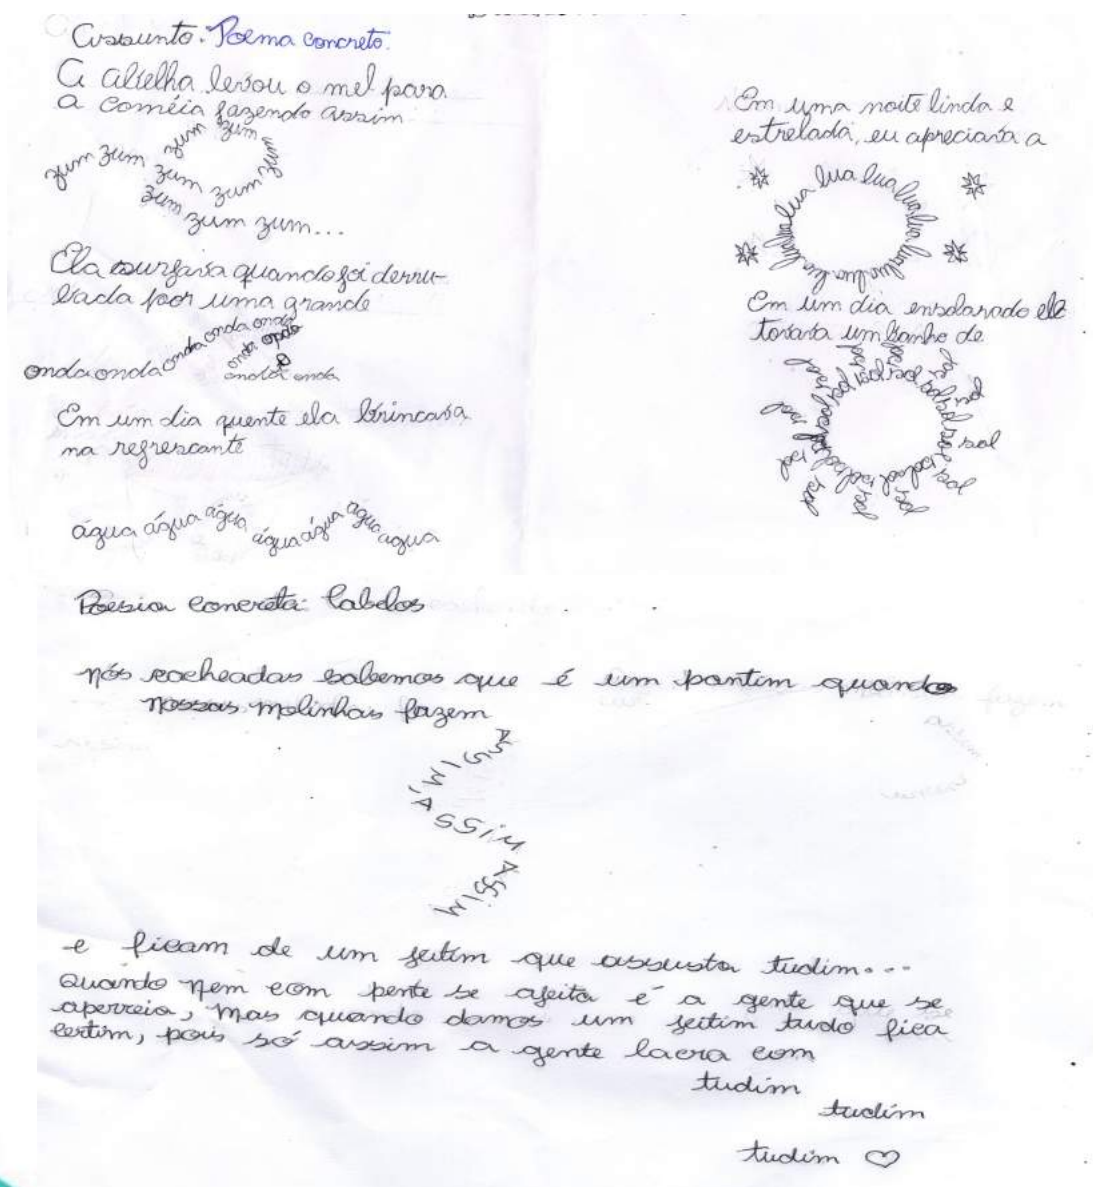 Assunto. Poema concreto.
A abelha levou o mel para
a coméia fazendo assim
zum zum zum zum zum
zum zum zum
zum zum zum...
Ela surfava quando foi derru-
bada por uma grande
onda onda onda onda onda
onda onda
onda onda
Em um dia quente ela brincava
na refrescante
água água água água água água água
Em uma noite linda e
estrelada, eu apreciava a
lua lua lua lua lua lua lua lua lua lua lua lua
Em um dia ensolarado ele
tomava um banho de
sol sol sol sol sol sol sol sol sol sol sol sol
Poesia concreta: Cabelos
nós cacheadas sabemos que é um pantim quando
nossas molinhas fazem
ASSIM,
ASSIM
ASSIM
e ficam de um jeitim que assusta tudim...
Quando nem com pente se ajeita é a gente que se
aperreia, mas quando damos um jeitim tudo fica
certim, pois só assim a gente lacra com
tudim
tudim
tudim